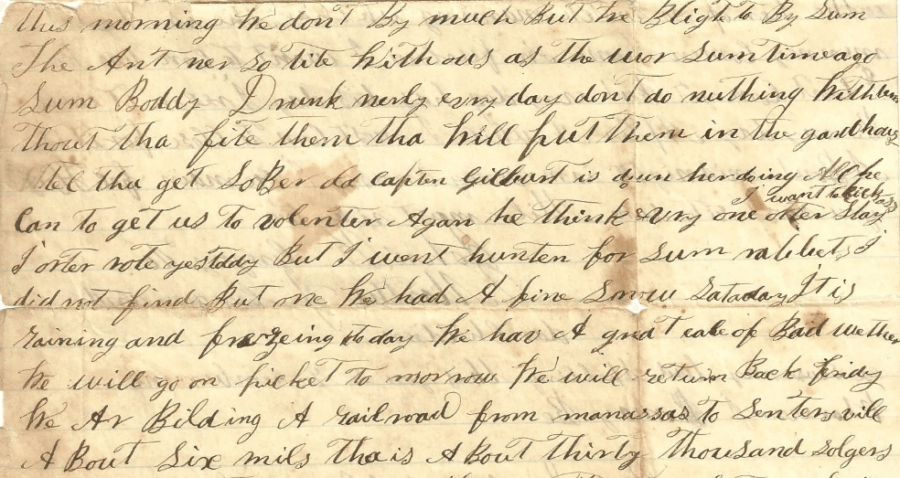 this morning We don't By much But We Bligt to By Sum
The Ant ner so tite With ous as the wor Sum time ago
Sum Boddy Drunk nerly evry day don't do nuthing With tum
thout tha fite them tha Will put Them in the gard hous
tel tha get SoBer old Capten Gilburt is down her doing All he
I want to kick
Can to get us to volenter Again he Think evry one orter stay
I orter rote yestddy But I went hunten for Sum rabbets I
did not find But one We had A fine Snow Sataday It is
raining and freezeing to day We hav A great eale of Bad wether
We will go on picket To morrow We will return Back Fridy
We Ar Bilding A rail road from manassas To Senters vill
A Bout Six mils tha is A Bout Thirty Thousand Solgers